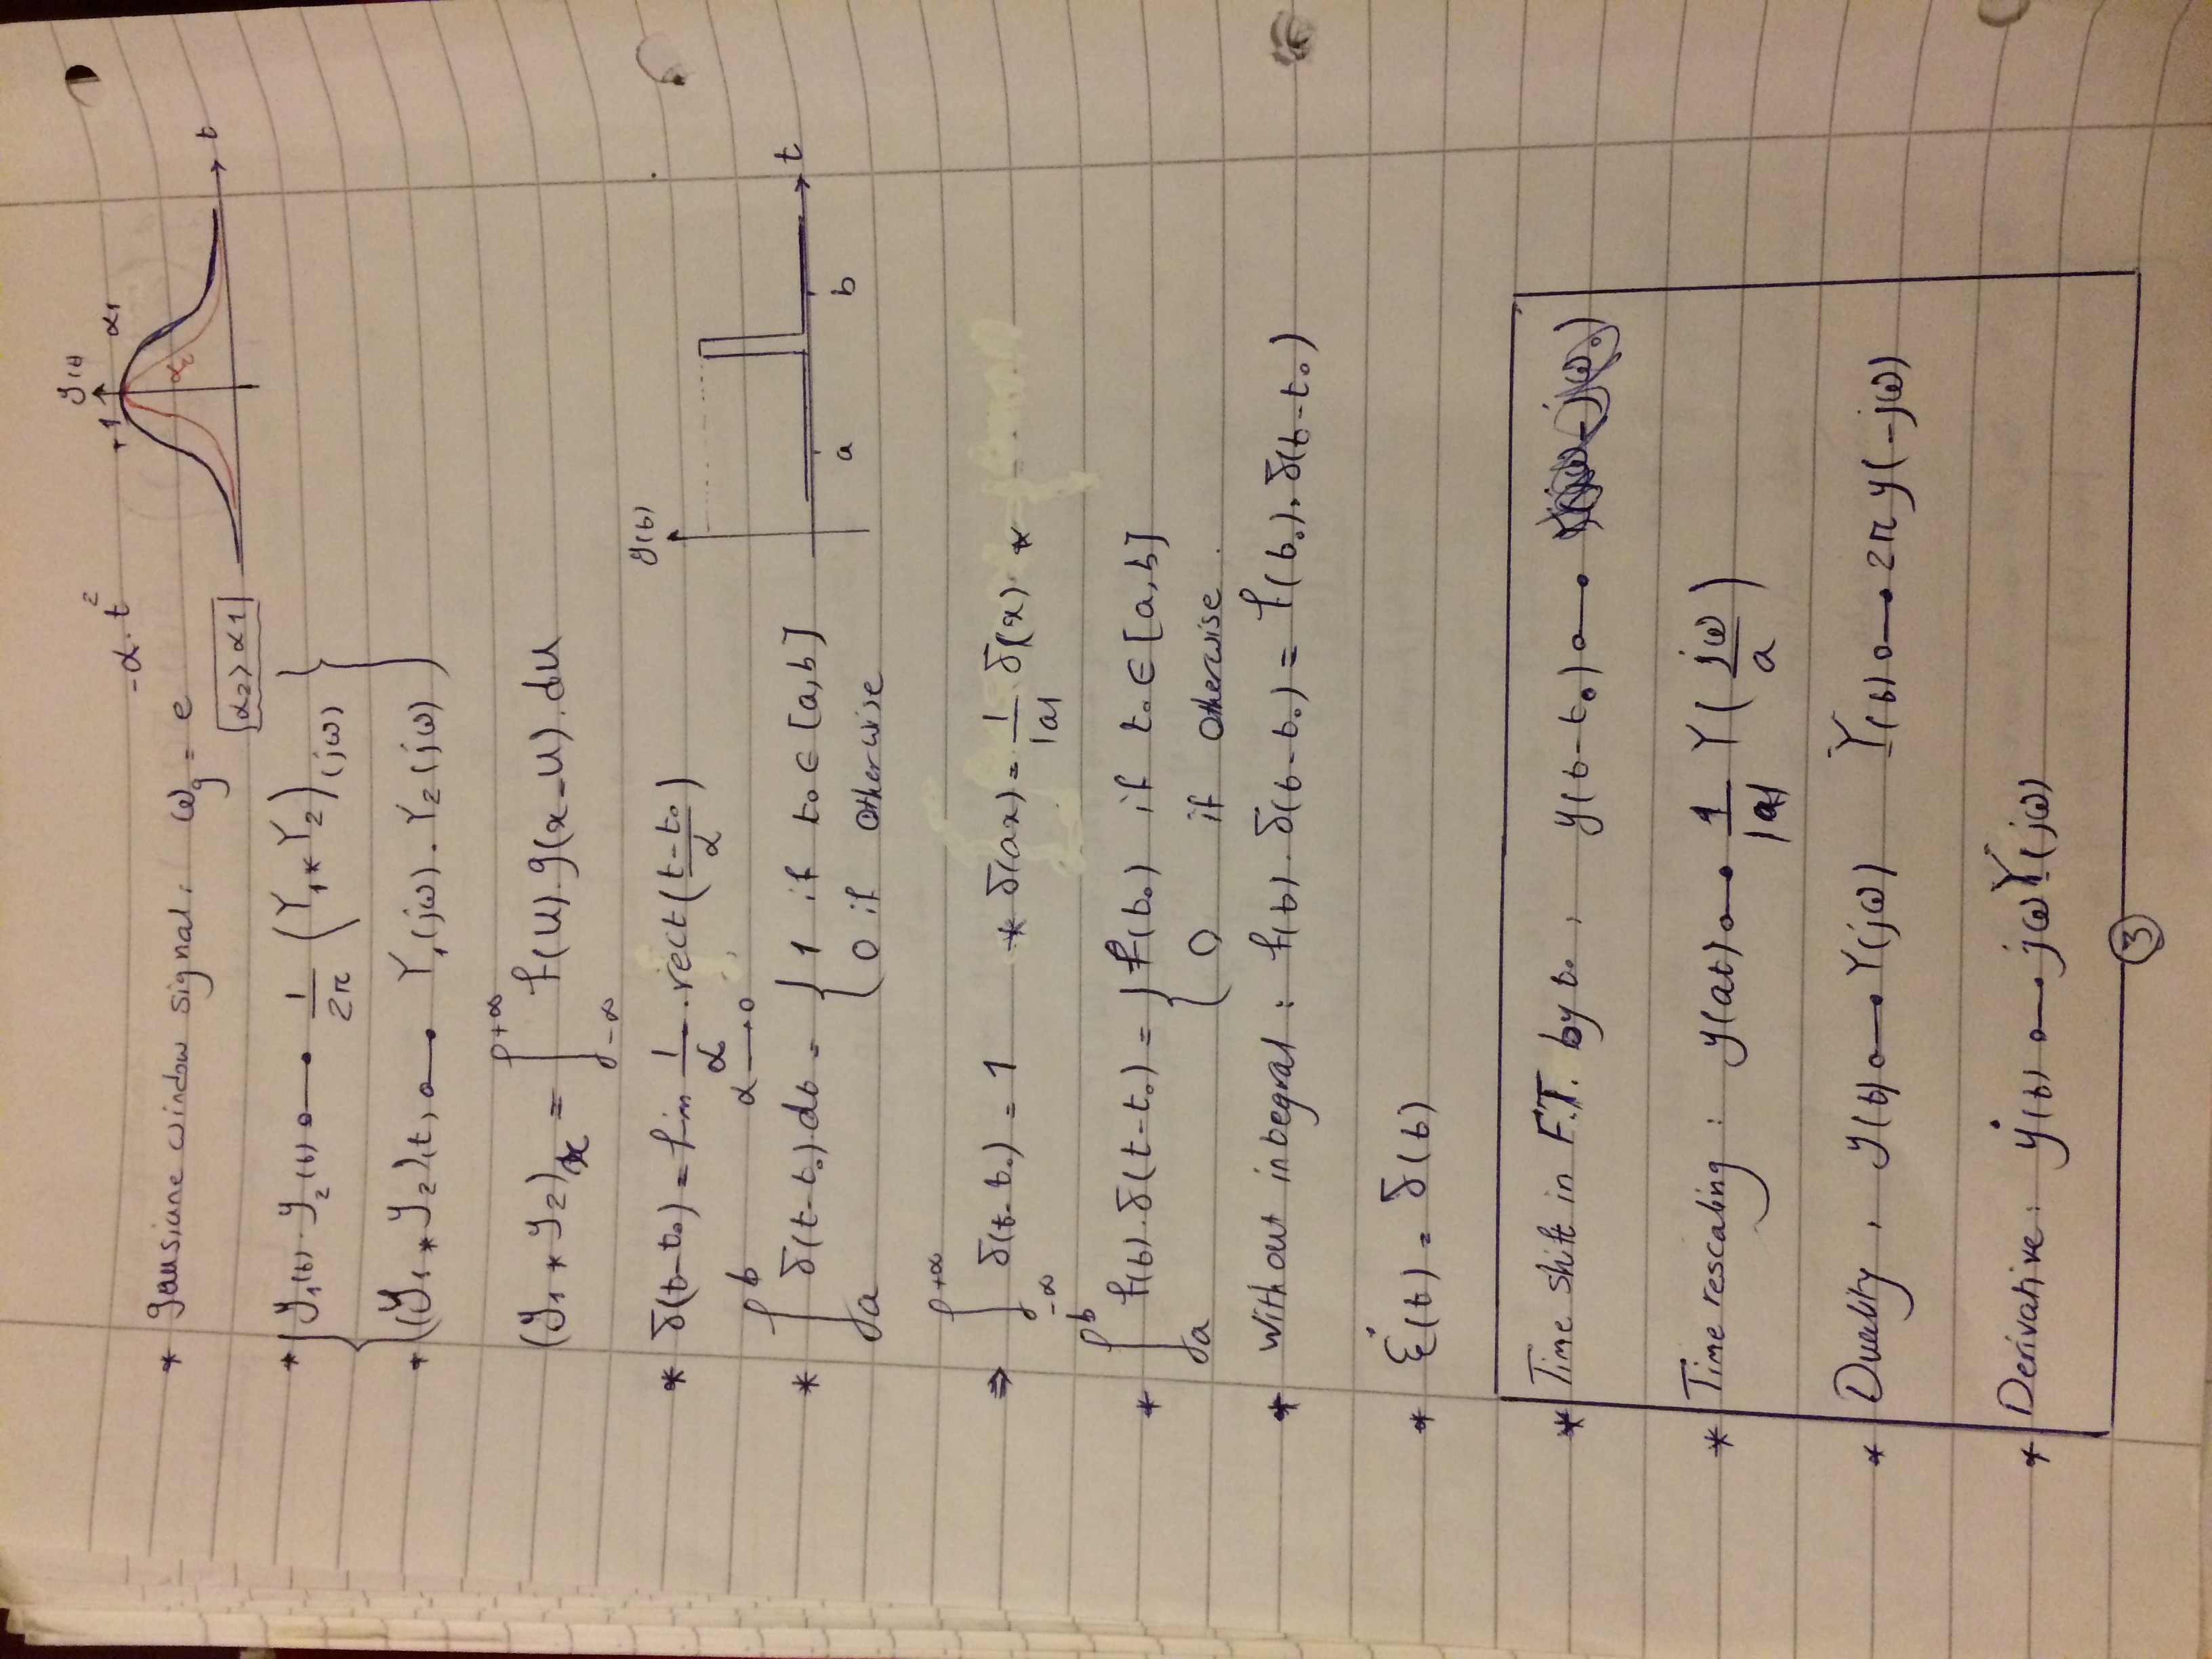 * gausiane window signal: ω_g = e^(-α.t²)
y(t) +1 α1 α2 t
α2 > α1
* y1(t) . y2(t) o—• 1/2π (Y1 * Y2)(jω)
* (y1 * y2)(t) o—• Y1(jω) . Y2(jω)
(y1 * y2)x = ∫_{-∞}^{+∞} f(u) . g(x-u) . du
* δ(t-t₀) = lim_{α→0} 1/α . rect((t-t₀)/α)
y(t) t a b
* ∫_a^b δ(t-t₀) dt = { 1 if t₀ ∈ [a,b]
0 if otherwise
⇒ ∫_{-∞}^{+∞} δ(t-t₀) = 1 * δ(ax) = 1/|a| δ(x) *
* ∫_a^b f(t) . δ(t-t₀) = { f(t₀) if t₀ ∈ [a,b]
0 if otherwise.
* Without integral: f(t) . δ(t-t₀) = f(t₀) . δ(t-t₀)
* ε̇(t) = δ(t)
* Time shift in F.T. by t₀, y(t-t₀) o—•
* Time rescaling: y(at) o—• 1/|a| Y(jω/a)
* Duality, y(t) o—• Y(jω) Y(t) o—• 2π y(-jω)
* Derivative: ẏ(t) o—• jωY(jω)
3